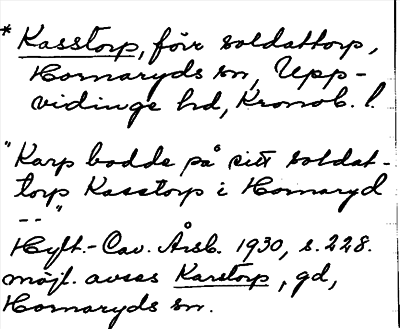 * Kasstorp, förr soldattorp,
Hornaryds sn, Upp-
vidinge hd, Kronob. l.
"Karp bodde på sitt soldat-
torp Kasstorp i Hornaryd
--"
Hylt.-Cav. Årsb. 1930, s. 228.
möjl. avses Karstorp, gd,
Hornaryds sn.